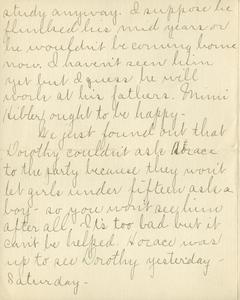 study anyway. I suppose he
flunked his mid years or
he wouldn't be coming home
now. I haven't seen him
yet but I guess he will
work at his fathers. Mimi
Hibler ought to be happy-
We just found out that
Dorothy couldn't ask Horace
to the party because they won't
let girls under fifteen ask a
boy - so you won't see him
after all. It's too bad but it
can't be helped. Horace was
up to see Dorothy yesterday -
Saturday -